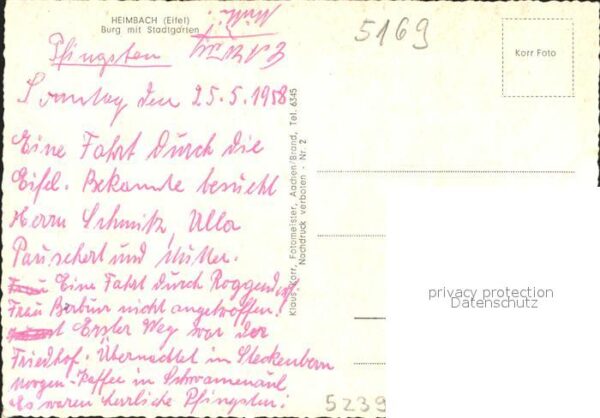 HEIMBACH (Eifel)
Burg mit Stadtgarten
5169
Korr Foto
Pfingsten
Sonntag den 25.5.1958
Eine Fahrt durch die
Eifel. Bekannte besucht
Herrn Schmitz, Ulla
Pauschert und Mutter.
Eine Fahrt durch Roggendorf,
Frau Berbür nicht angetroffen!
Erster Weg war der
Friedhof. Übernachtet in Steckenborn
Morgen-Kaffee in Schwammenaul
Es waren herrliche Pfingsten!
Klaus Korr, Fotomeister, Aachen/Brand, Tel. 6345
Nachdruck verboten - Nr. 2
privacy protection
Datenschutz
5239